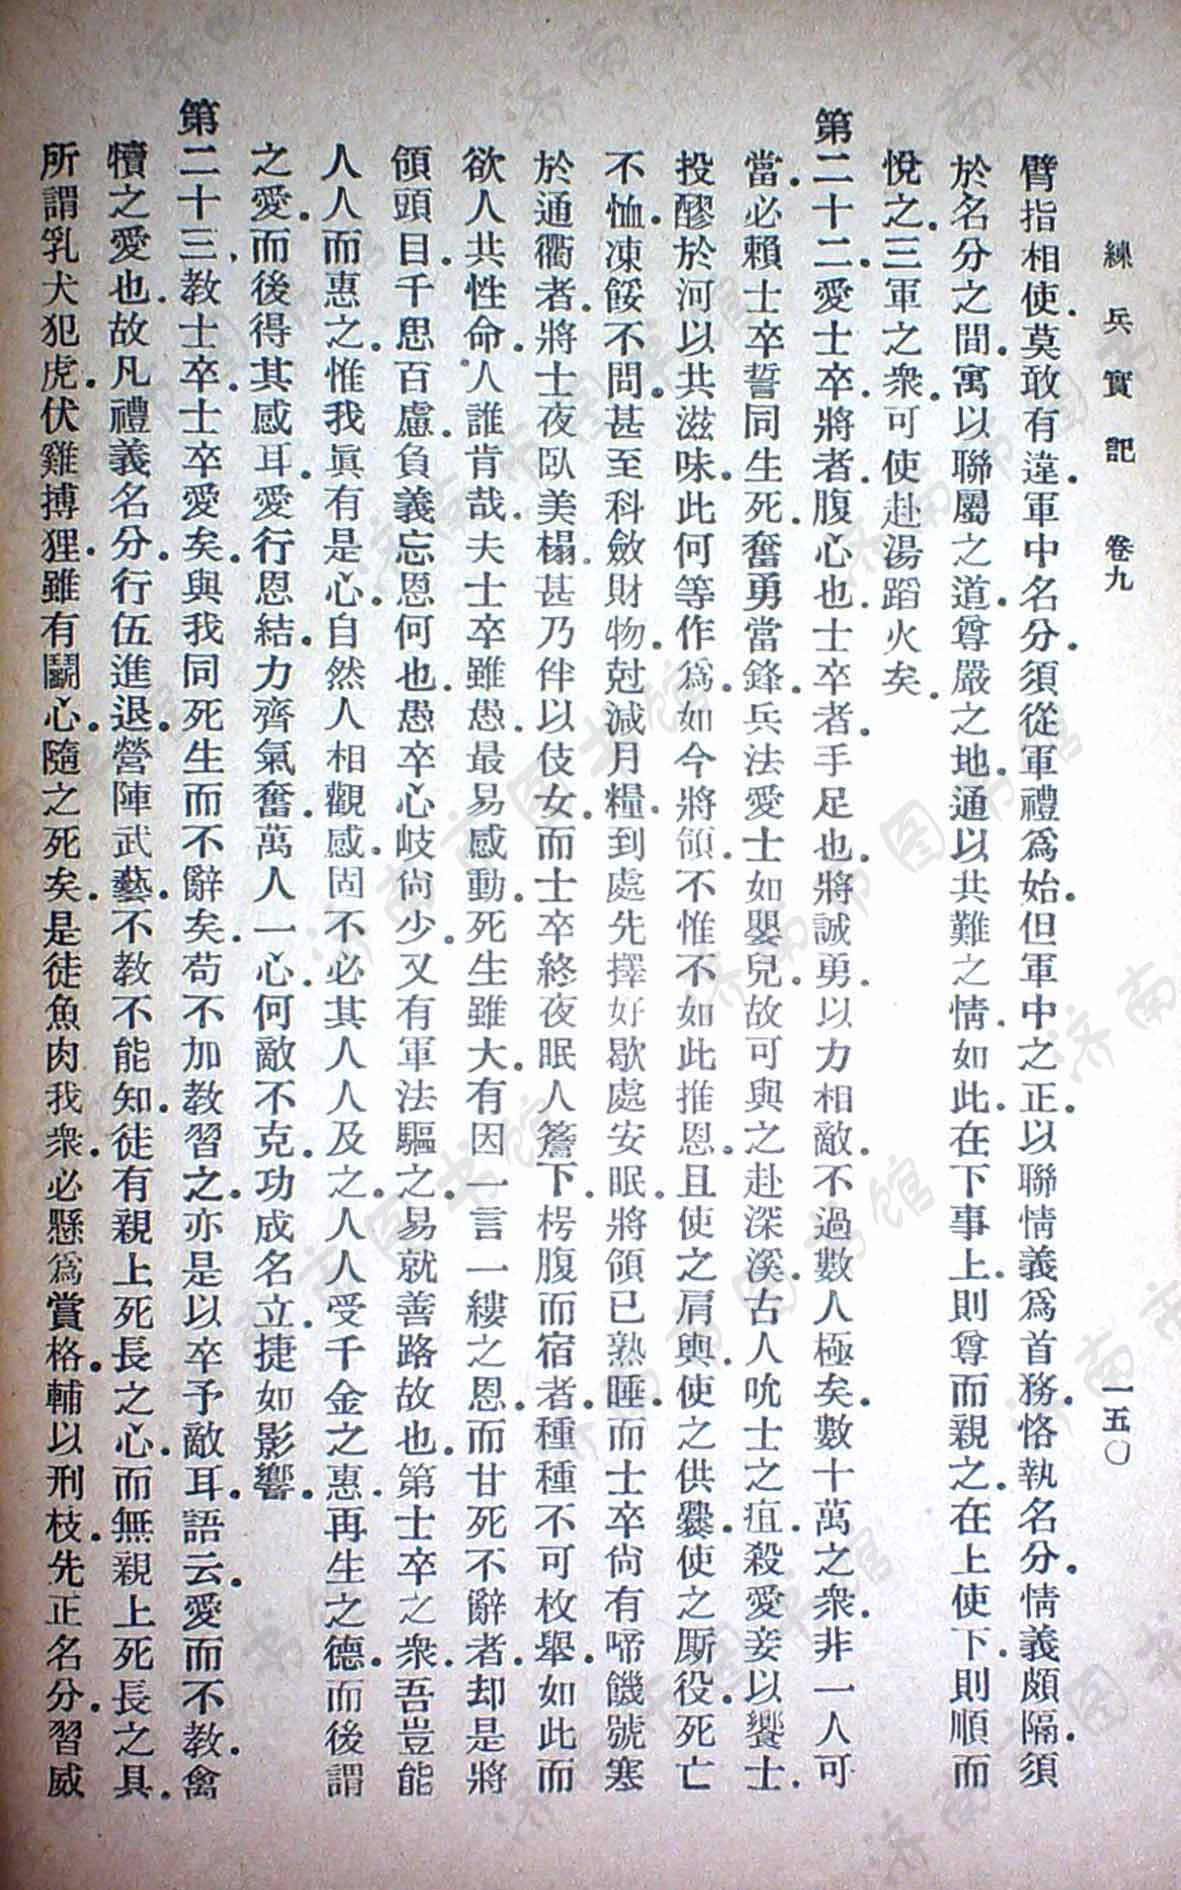 練兵實記 卷九 一五〇
臂指相使.莫敢有違.軍中名分.須從軍禮爲始.但軍中之正.以聯情義爲首務.恪執名分.情義頗隔.須
於名分之間.寓以聯屬之道.尊嚴之地.通以共難之情.如此.在下事上.則尊而親之.在上使下.則順而
悅之.三軍之衆.可使赴湯蹈火矣.
第二十二.愛士卒.將者.腹心也.士卒者.手足也.將誠勇.以力相敵.不過數人極矣.數十萬之衆.非一人可
當.必賴士卒誓同生死.奮勇當鋒.兵法愛士如嬰兒.故可與之赴深溪.古人吮士之疽.殺愛妾以饗士.
投醪於河以共滋味.此何等作爲.如今將領.不惟不如此推恩.且使之肩輿.使之供爨.使之厮役.死亡
不恤.凍餒不問.甚至科斂財物.尅減月糧.到處先擇好歇處安眠.將領已熟睡.而士卒尙有啼饑號寒
於通衢者.將士夜臥美榻.甚乃伴以伎女.而士卒終夜眠人簷下.枵腹而宿者.種種不可枚舉.如此而
欲人共性命.人誰肯哉.夫士卒雖愚.最易感動.死生雖大.有因一言一縷之恩.而甘死不辭者.却是將
領頭目.千思百慮.負義忘恩.何也.愚卒心岐尙少.又有軍法驅之.易就善路故也.第士卒之衆.吾豈能
人人而惠之.惟我眞有是心.自然人相觀感.固不必其人人及之.人人受千金之惠.再生之德.而後謂
之愛.而後得其感耳.愛行恩結.力齊氣奮.萬人一心.何敵不克.功成名立.捷如影響.
第二十三.教士卒.士卒愛矣.與我同死生而不辭矣.苟不加教習之.亦是以卒予敵耳.語云.愛而不教.禽
犢之愛也.故凡禮義名分.行伍進退.營陣武藝.不教不能知.徒有親上死長之心.而無親上死長之具.
所謂乳犬犯虎.伏雞搏狸.雖有鬭心.隨之死矣.是徒魚肉我衆.必懸爲賞格.輔以刑枝.先正名分.習威